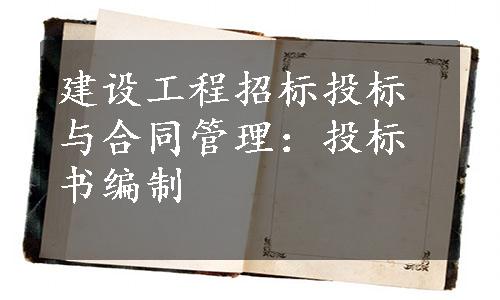 建设工程招标投标
与合同管理：投标
书编制